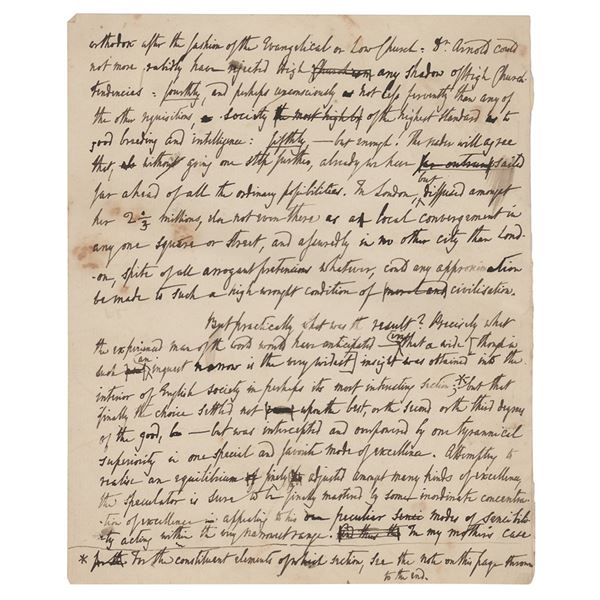 orthodox after the fashion of the Evangelical or Low Church: Dr Arnold could
not more rabidly have rejected High Church any shadow of High Church
tendencies: fourthly, and perhaps unconsciously not less fervently than any of
the other requisitions, society the most highly of the highest standard as to
good breeding and intelligence: fifthly, — but enough! The reader will agree
that, without going one step further, already we have sailed
far ahead of all the ordinary possibilities. In London, but diffused amongst
her 2 2/3 millions, not even there as a local convergement in
any one square or street, and assuredly in no other city than Lond-
-on, spite of all arrogant pretensions whatever, could any approximation
be made to such a high-wrought condition of moral and civilisation.
But practically what was the result? Precisely what
the experienced man of the world would have anticipated that a wide [though in
such an inquest narrow is the very widest] insight was obtained into the
interior of English society in perhaps its most interesting section;* but that
finally the choice settled not upon the best, or the second or the third degrees
of the good, — but was intercepted and overpowered by one tyrannical
superiority in one special and favorite mode of excellence. Attempting to
realise an equilibrium finely adjusted amongst many kinds of excellence,
the speculator is sure to be finally mastered by some inordinate concentra-
tion of excellence in appealing to his own peculiar sense modes of sensibili-
ty acting within the very narrowest range. And thus In my mother's case
* For the constituent elements of which section, see the note on this page thrown
to the end.